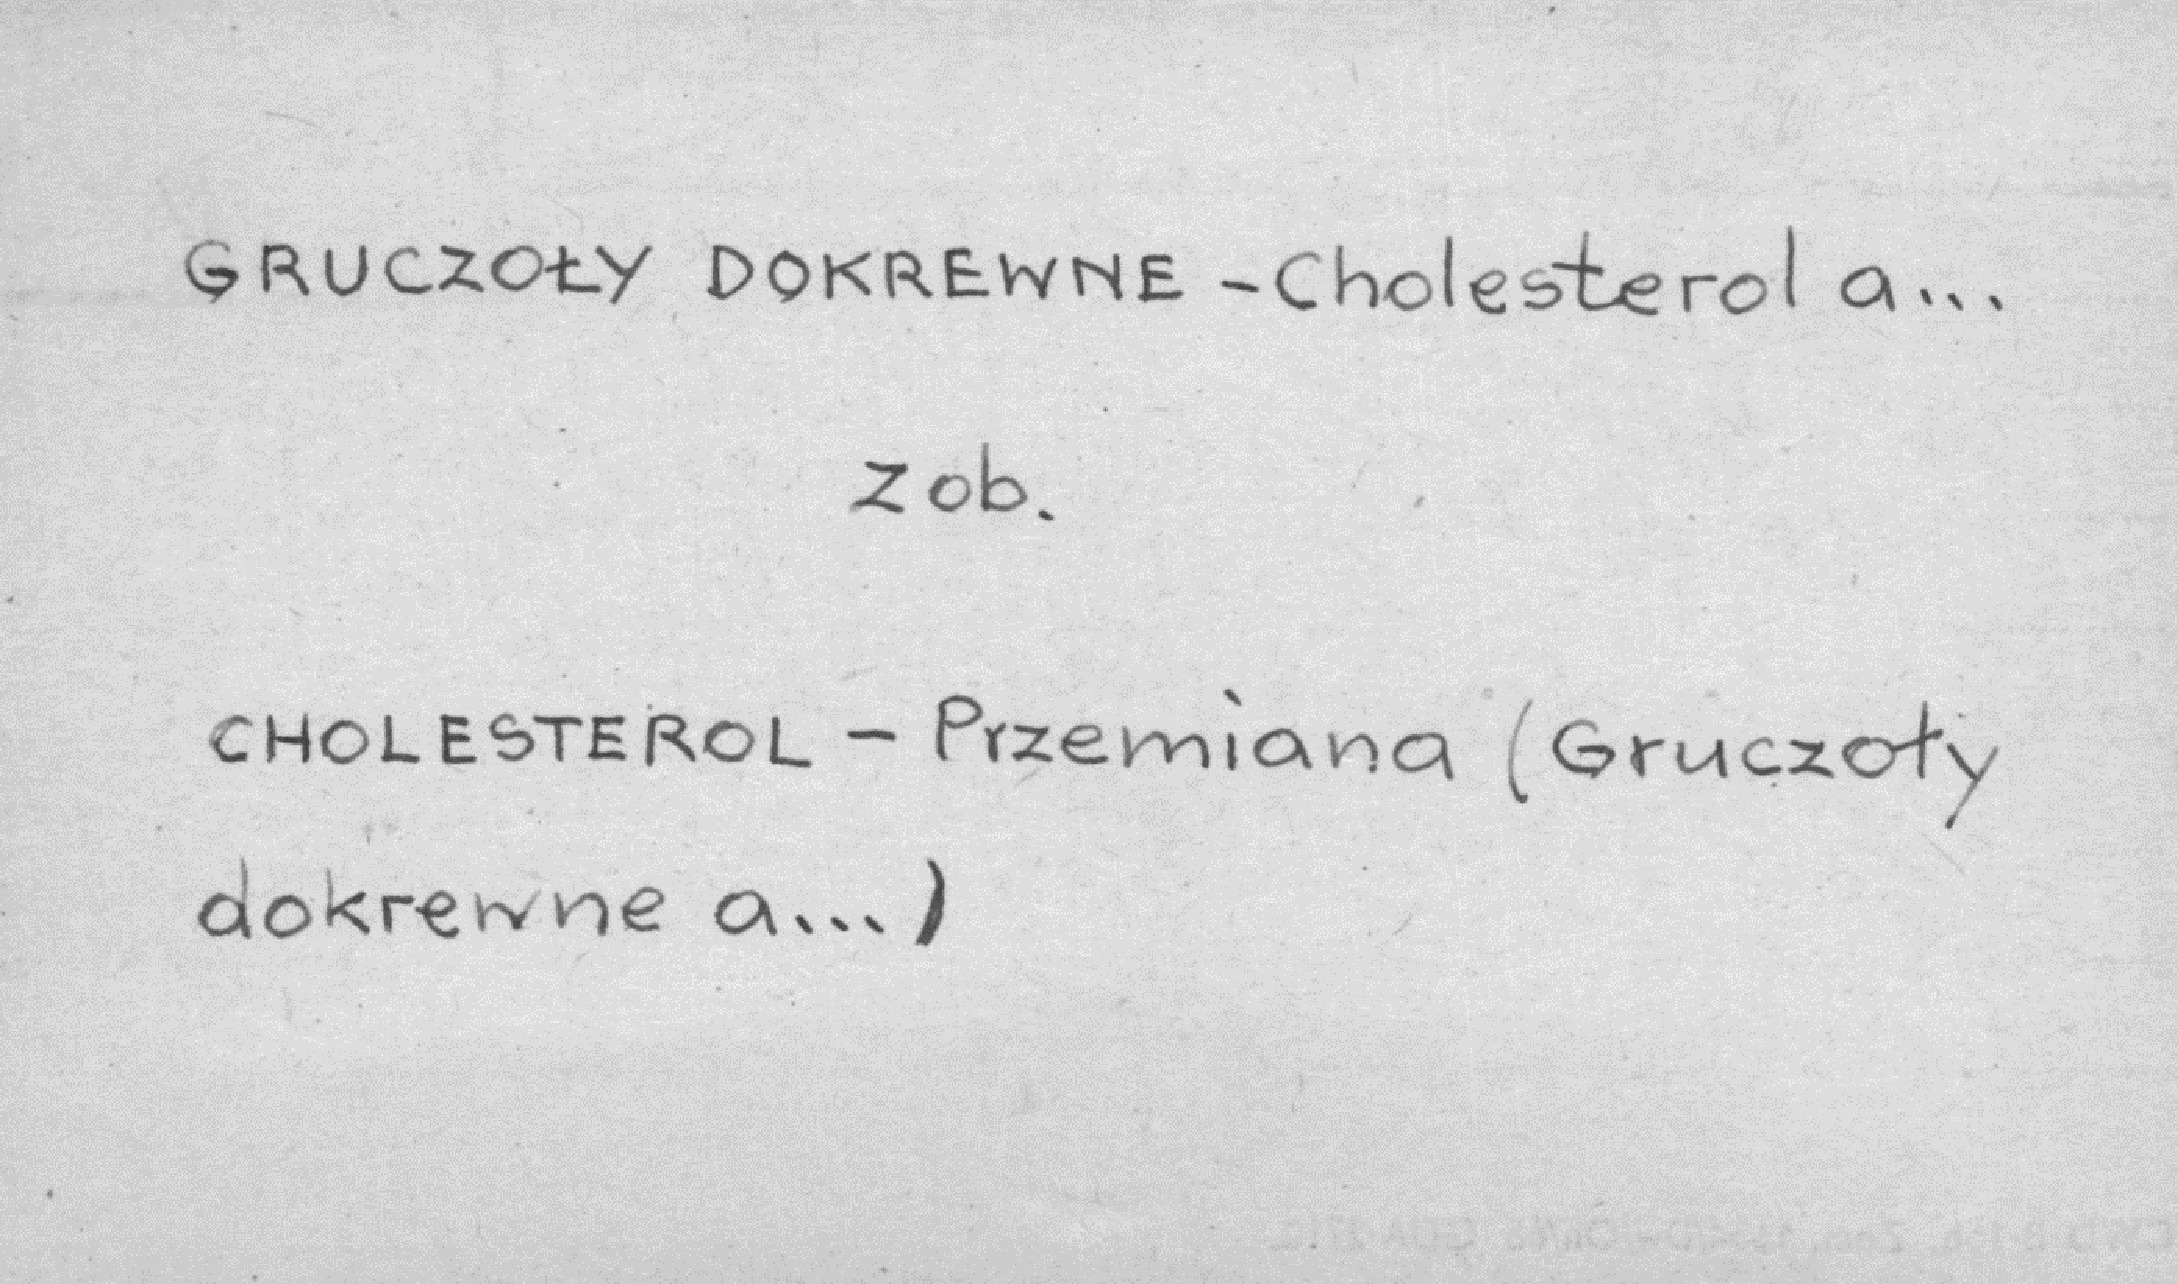 GRUCZOŁY DOKREWNE - Cholesterol a...
zob.
CHOLESTEROL - Przemiana (Gruczoły
dokrewne a...)